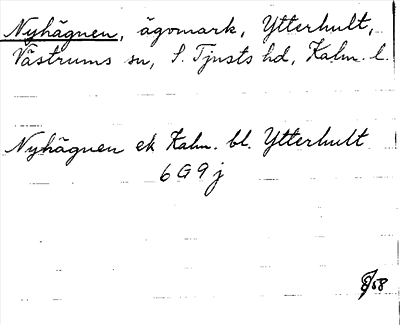 Nyhägnen, ägomark, Ytterhult,
Västrums sn, S. Tjusts hd, Kalm. l.
Nyhägnen ek Kalm. bl. Ytterhult
6 G 9 j
58